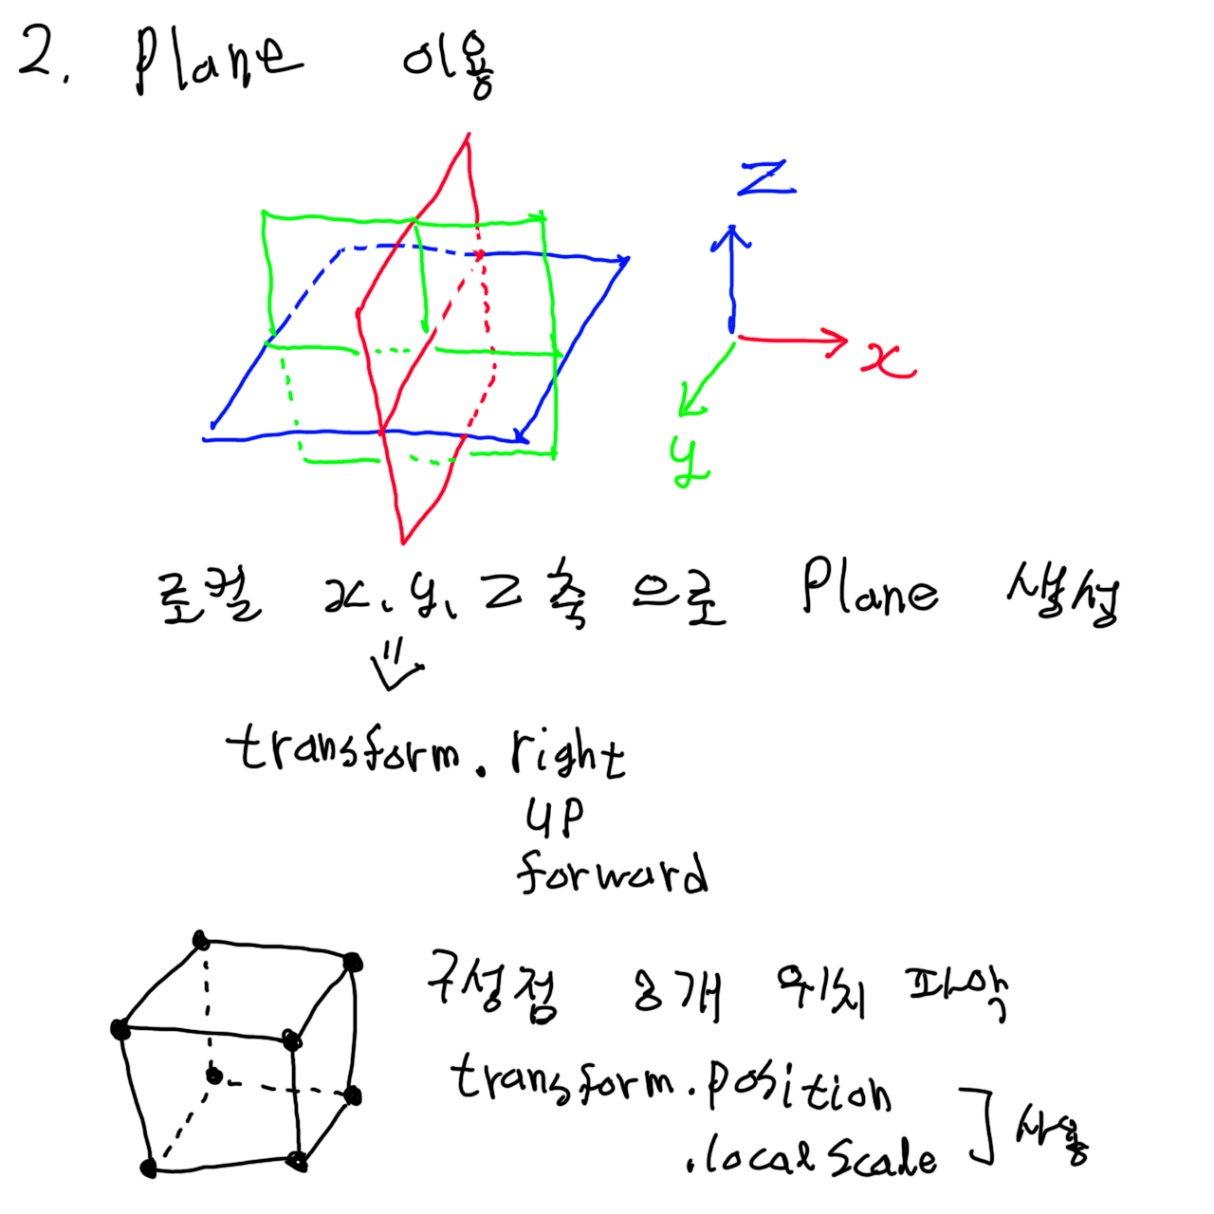 2. Plane 이용
Z
x
y
로컬 x, y, z 축 으로 Plane 생성
transform. right
up
forward
구성점 8개 위치 파악
transform.position
.localScale
사용